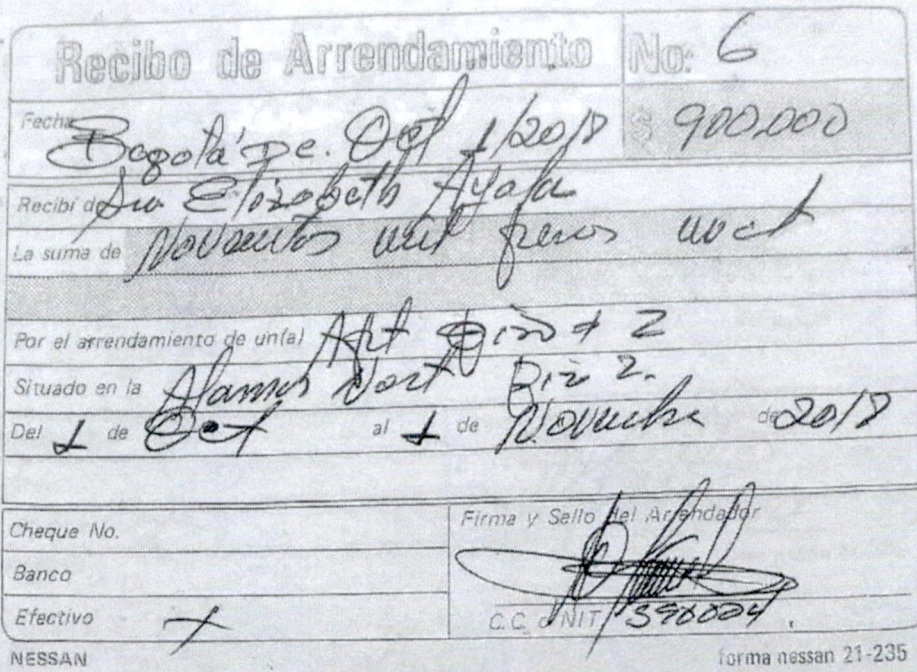 Recibo de Arrendamiento No: 6
Fecha Bogotá D.C. Oct 1/2018 $ 900.000
Recibí de Sra Elizabeth Ayala
La suma de Novecientos mil pesos mct
Por el arrendamiento de un(a) Apt Piso # 2
Situado en la Alamos Nort Piso 2.
Del 1 de Oct al 1 de Noviembre de 2018
Cheque No.
Firma y Sello del Arrendador
Banco
Efectivo X
C.C. o NIT
NESSAN forma nessan 21-235